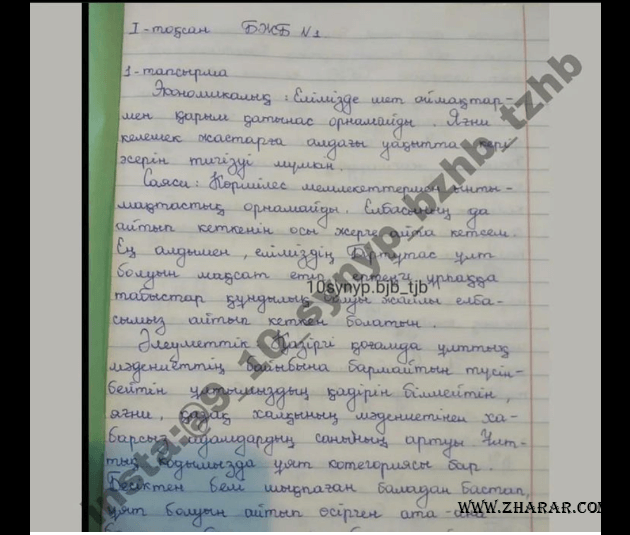 I-тоқсан БЖБ №1
1-тапсырма
Экономикалық: Елімізде шет аймақтар-
мен қарым қатынас орнамайды. Яғни
келешек жастарға алдағы уақытта кері
әсерін тигізуі мүмкін.
Саяси: Көршілес мемлекеттермен ынты-
мақтастық орнамайды. Елбасының да
айтып кеткенін осы жерге айта кетсем.
Ең алдымен, еліміздің Біртұтас ұлт
болуын мақсат етіп ертеңгі ұрпаққа
10synyp.bjb_tjb
табыстар құндылық болуы жайлы елба-
сымыз айтып кеткен болатын.
Әлеуметтік Қазіргі қоғамда ұлттық
мәдениеттің байыбына бармайтын түсін-
бейтін ұлтымыздың қадірін білмейтін,
яғни, қазақ халқының мәдениетінен ха-
барсыз адамдардың санының артуы Ұлт-
тық кодымызда ұят котегориясы бар.
Бесіктен белі шықпаған баладан бастап,
ұят болуын айтып өсірген ата-ана
insta:@9_10_synyp_bzhb_tzhb
WWW.ZHARAR.COM